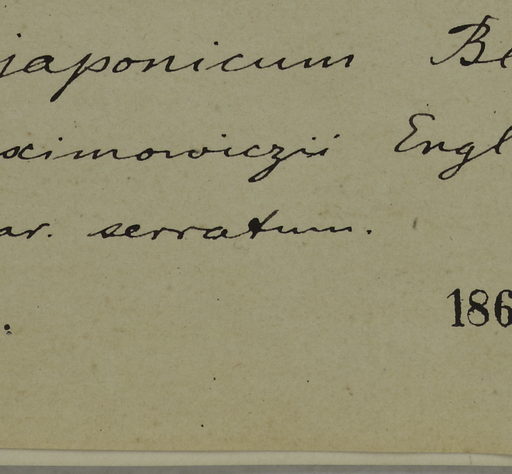 japonicum Bl
ximowiczii Engl
ar. serratum.
.
186